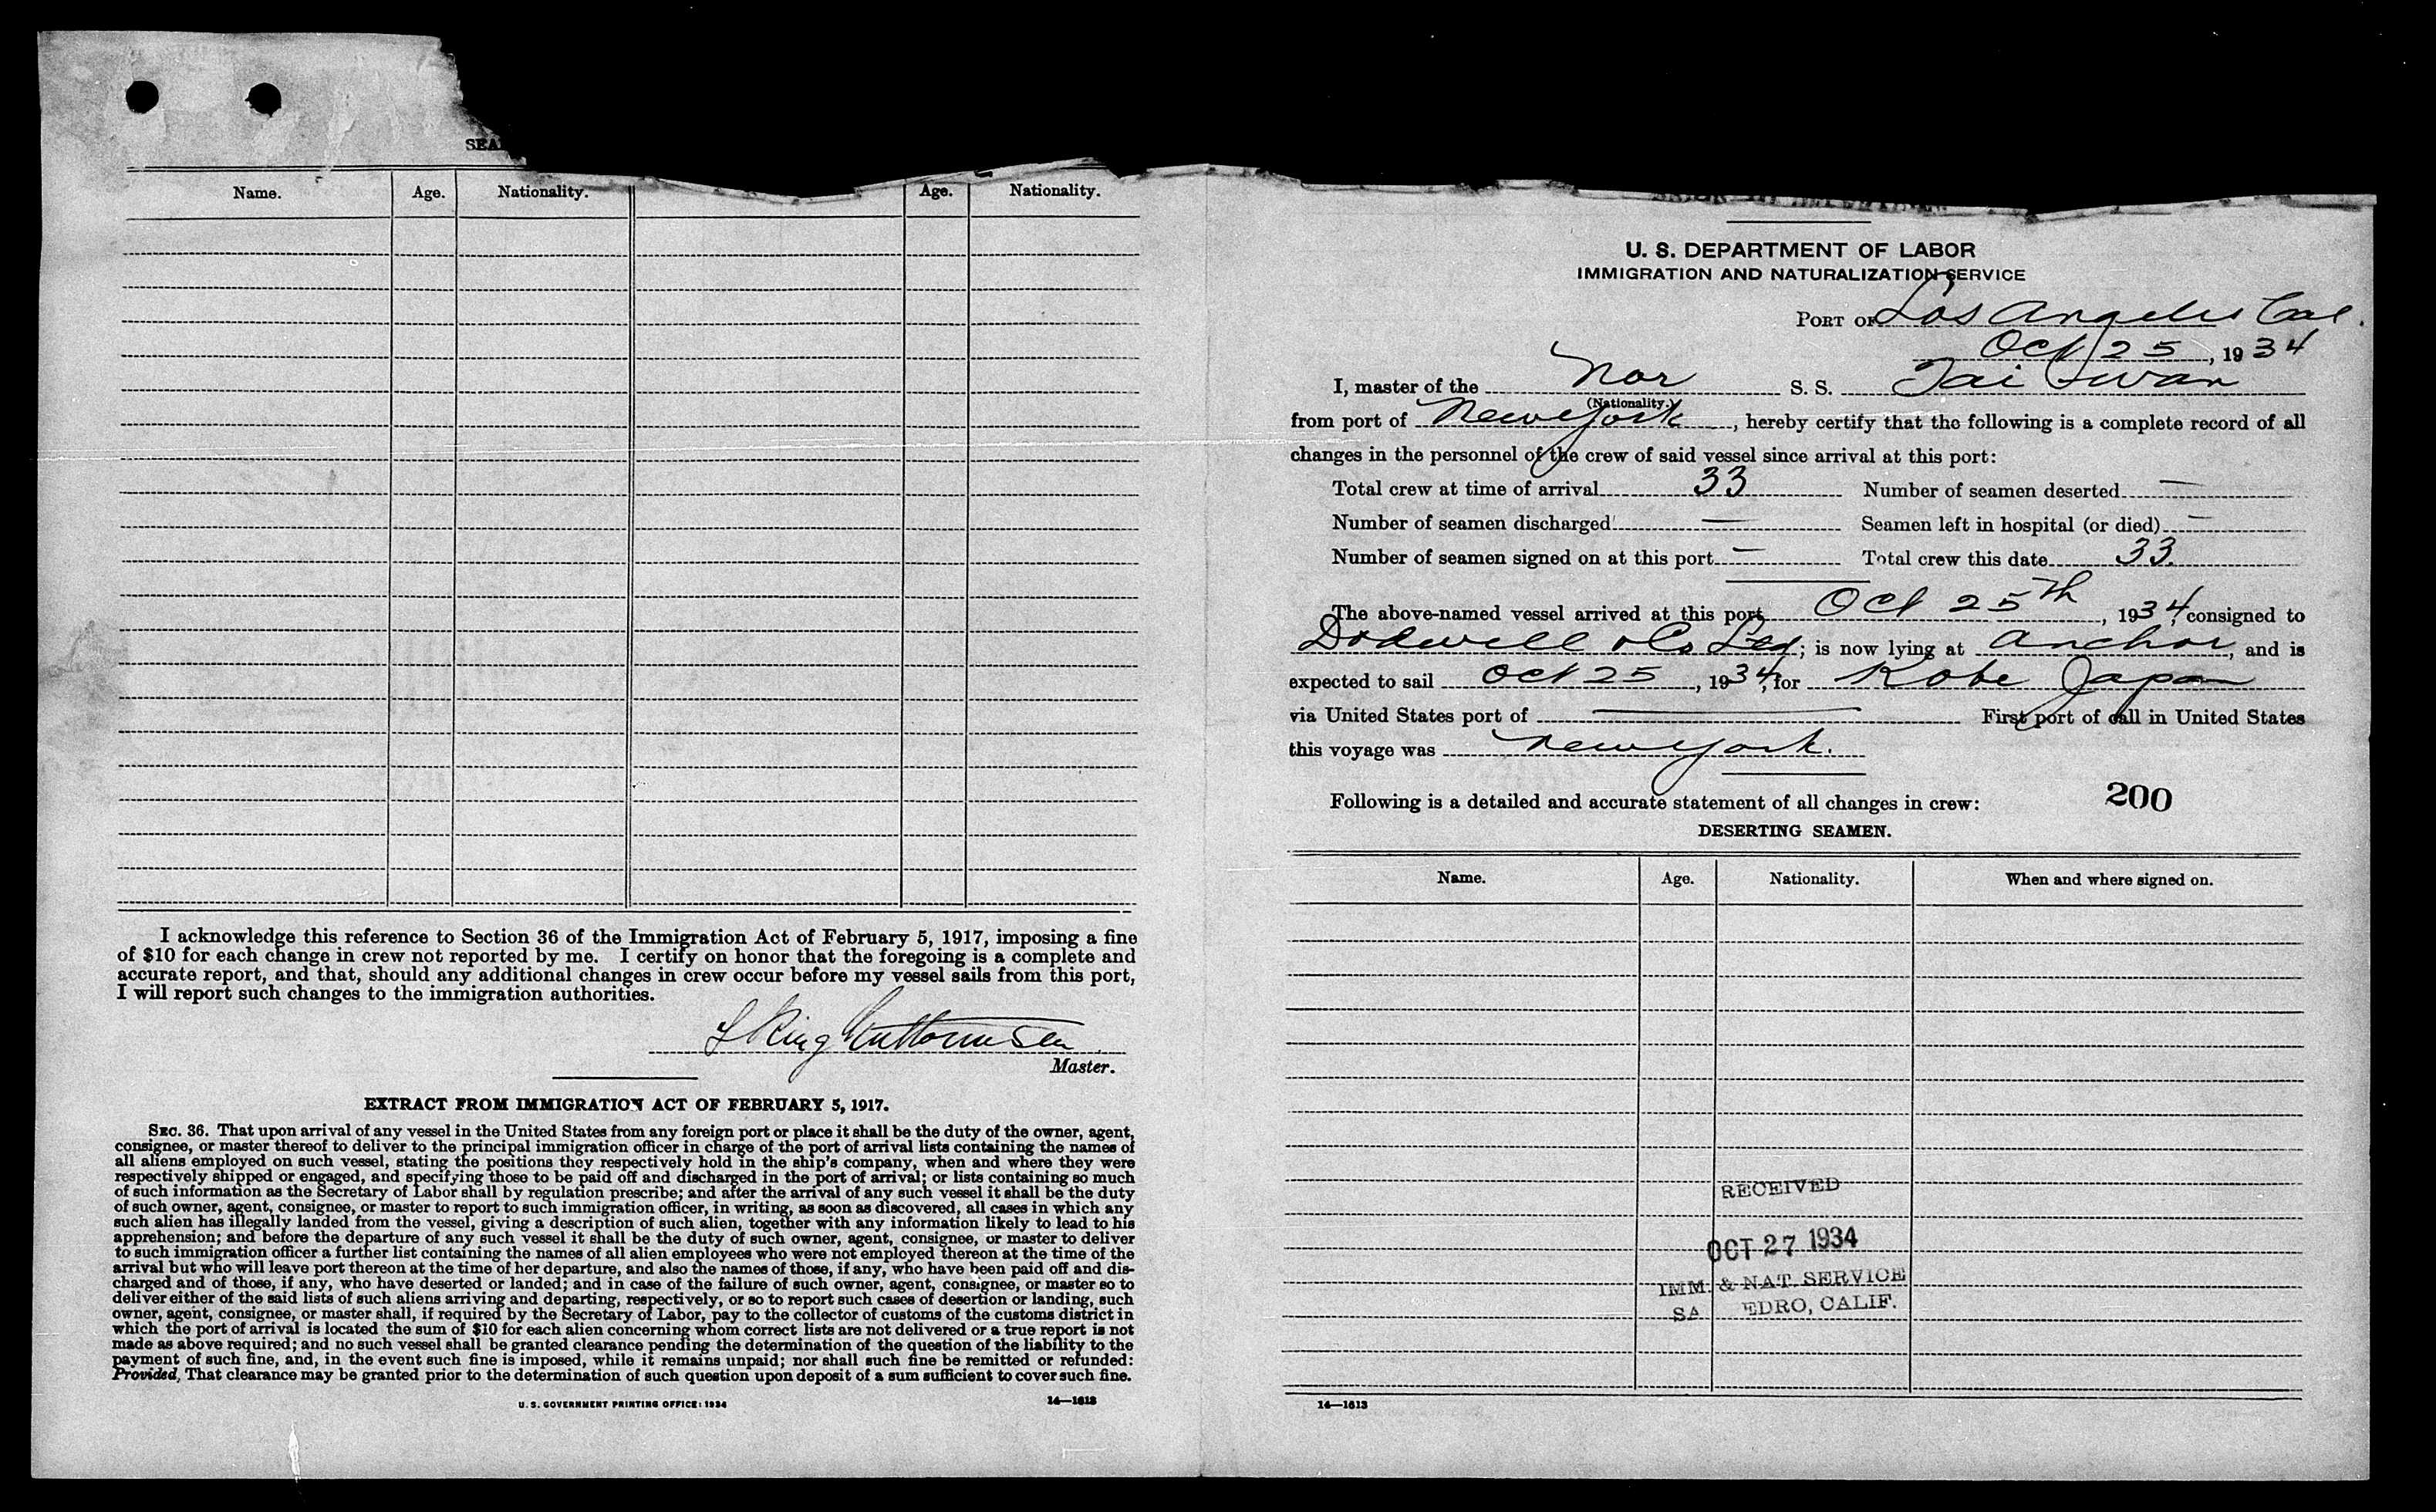 Name.
Age.
Nationality.
Age.
Nationality.
I acknowledge this reference to Section 36 of the Immigration Act of February 5, 1917, imposing a fine
of $10 for each change in crew not reported by me. I certify on honor that the foregoing is a complete and
accurate report, and that, should any additional changes in crew occur before my vessel sails from this port,
I will report such changes to the immigration authorities.
Master.
EXTRACT FROM IMMIGRATION ACT OF FEBRUARY 5, 1917.
SEC. 36. That upon arrival of any vessel in the United States from any foreign port or place it shall be the duty of the owner, agent,
consignee, or master thereof to deliver to the principal immigration officer in charge of the port of arrival lists containing the names of
all aliens employed on such vessel, stating the positions they respectively hold in the ship's company, when and where they were
respectively shipped or engaged, and specifying those to be paid off and discharged in the port of arrival; or lists containing so much
of such information as the Secretary of Labor shall by regulation prescribe; and after the arrival of any such vessel it shall be the duty
of such owner, agent, consignee, or master to report to such immigration officer, in writing, as soon as discovered, all cases in which any
such alien has illegally landed from the vessel, giving a description of such alien, together with any information likely to lead to his
apprehension; and before the departure of any such vessel it shall be the duty of such owner, agent, consignee, or master to deliver
to such immigration officer a further list containing the names of all alien employees who were not employed thereon at the time of the
arrival but who will leave port thereon at the time of her departure, and also the names of those, if any, who have been paid off and dis-
charged and of those, if any, who have deserted or landed; and in case of the failure of such owner, agent, consignee, or master so to
deliver either of the said lists of such aliens arriving and departing, respectively, or so to report such cases of desertion or landing, such
owner, agent, consignee, or master shall, if required by the Secretary of Labor, pay to the collector of customs of the customs district in
which the port of arrival is located the sum of $10 for each alien concerning whom correct lists are not delivered or a true report is not
made as above required; and no such vessel shall be granted clearance pending the determination of the question of the liability to the
payment of such fine, and, in the event such fine is imposed, while it remains unpaid; nor shall such fine be remitted or refunded:
Provided, That clearance may be granted prior to the determination of such question upon deposit of a sum sufficient to cover such fine.
U. S. GOVERNMENT PRINTING OFFICE: 1934
14—1613
U. S. DEPARTMENT OF LABOR
IMMIGRATION AND NATURALIZATION SERVICE
PORT OF Los Angeles Cal.
Oct 25, 1934
I, master of the Nor S. S. Tai
(Nationality.)
from port of New York, hereby certify that the following is a complete record of all
changes in the personnel of the crew of said vessel since arrival at this port:
Total crew at time of arrival 33 Number of seamen deserted —
Number of seamen discharged — Seamen left in hospital (or died) —
Number of seamen signed on at this port — Total crew this date 33.
The above-named vessel arrived at this port Oct 25th, 1934, consigned to
Dodwell & Co Ltd; is now lying at anchor, and is
expected to sail Oct 25, 1934, for Kobe Japan
via United States port of — First port of call in United States
this voyage was New York.
Following is a detailed and accurate statement of all changes in crew:
200
DESERTING SEAMEN.
Name.
Age.
Nationality.
When and where signed on.
RECEIVED
OCT 27 1934
IMM. & NAT. SERVICE
SA EDRO, CALIF.
14—1613